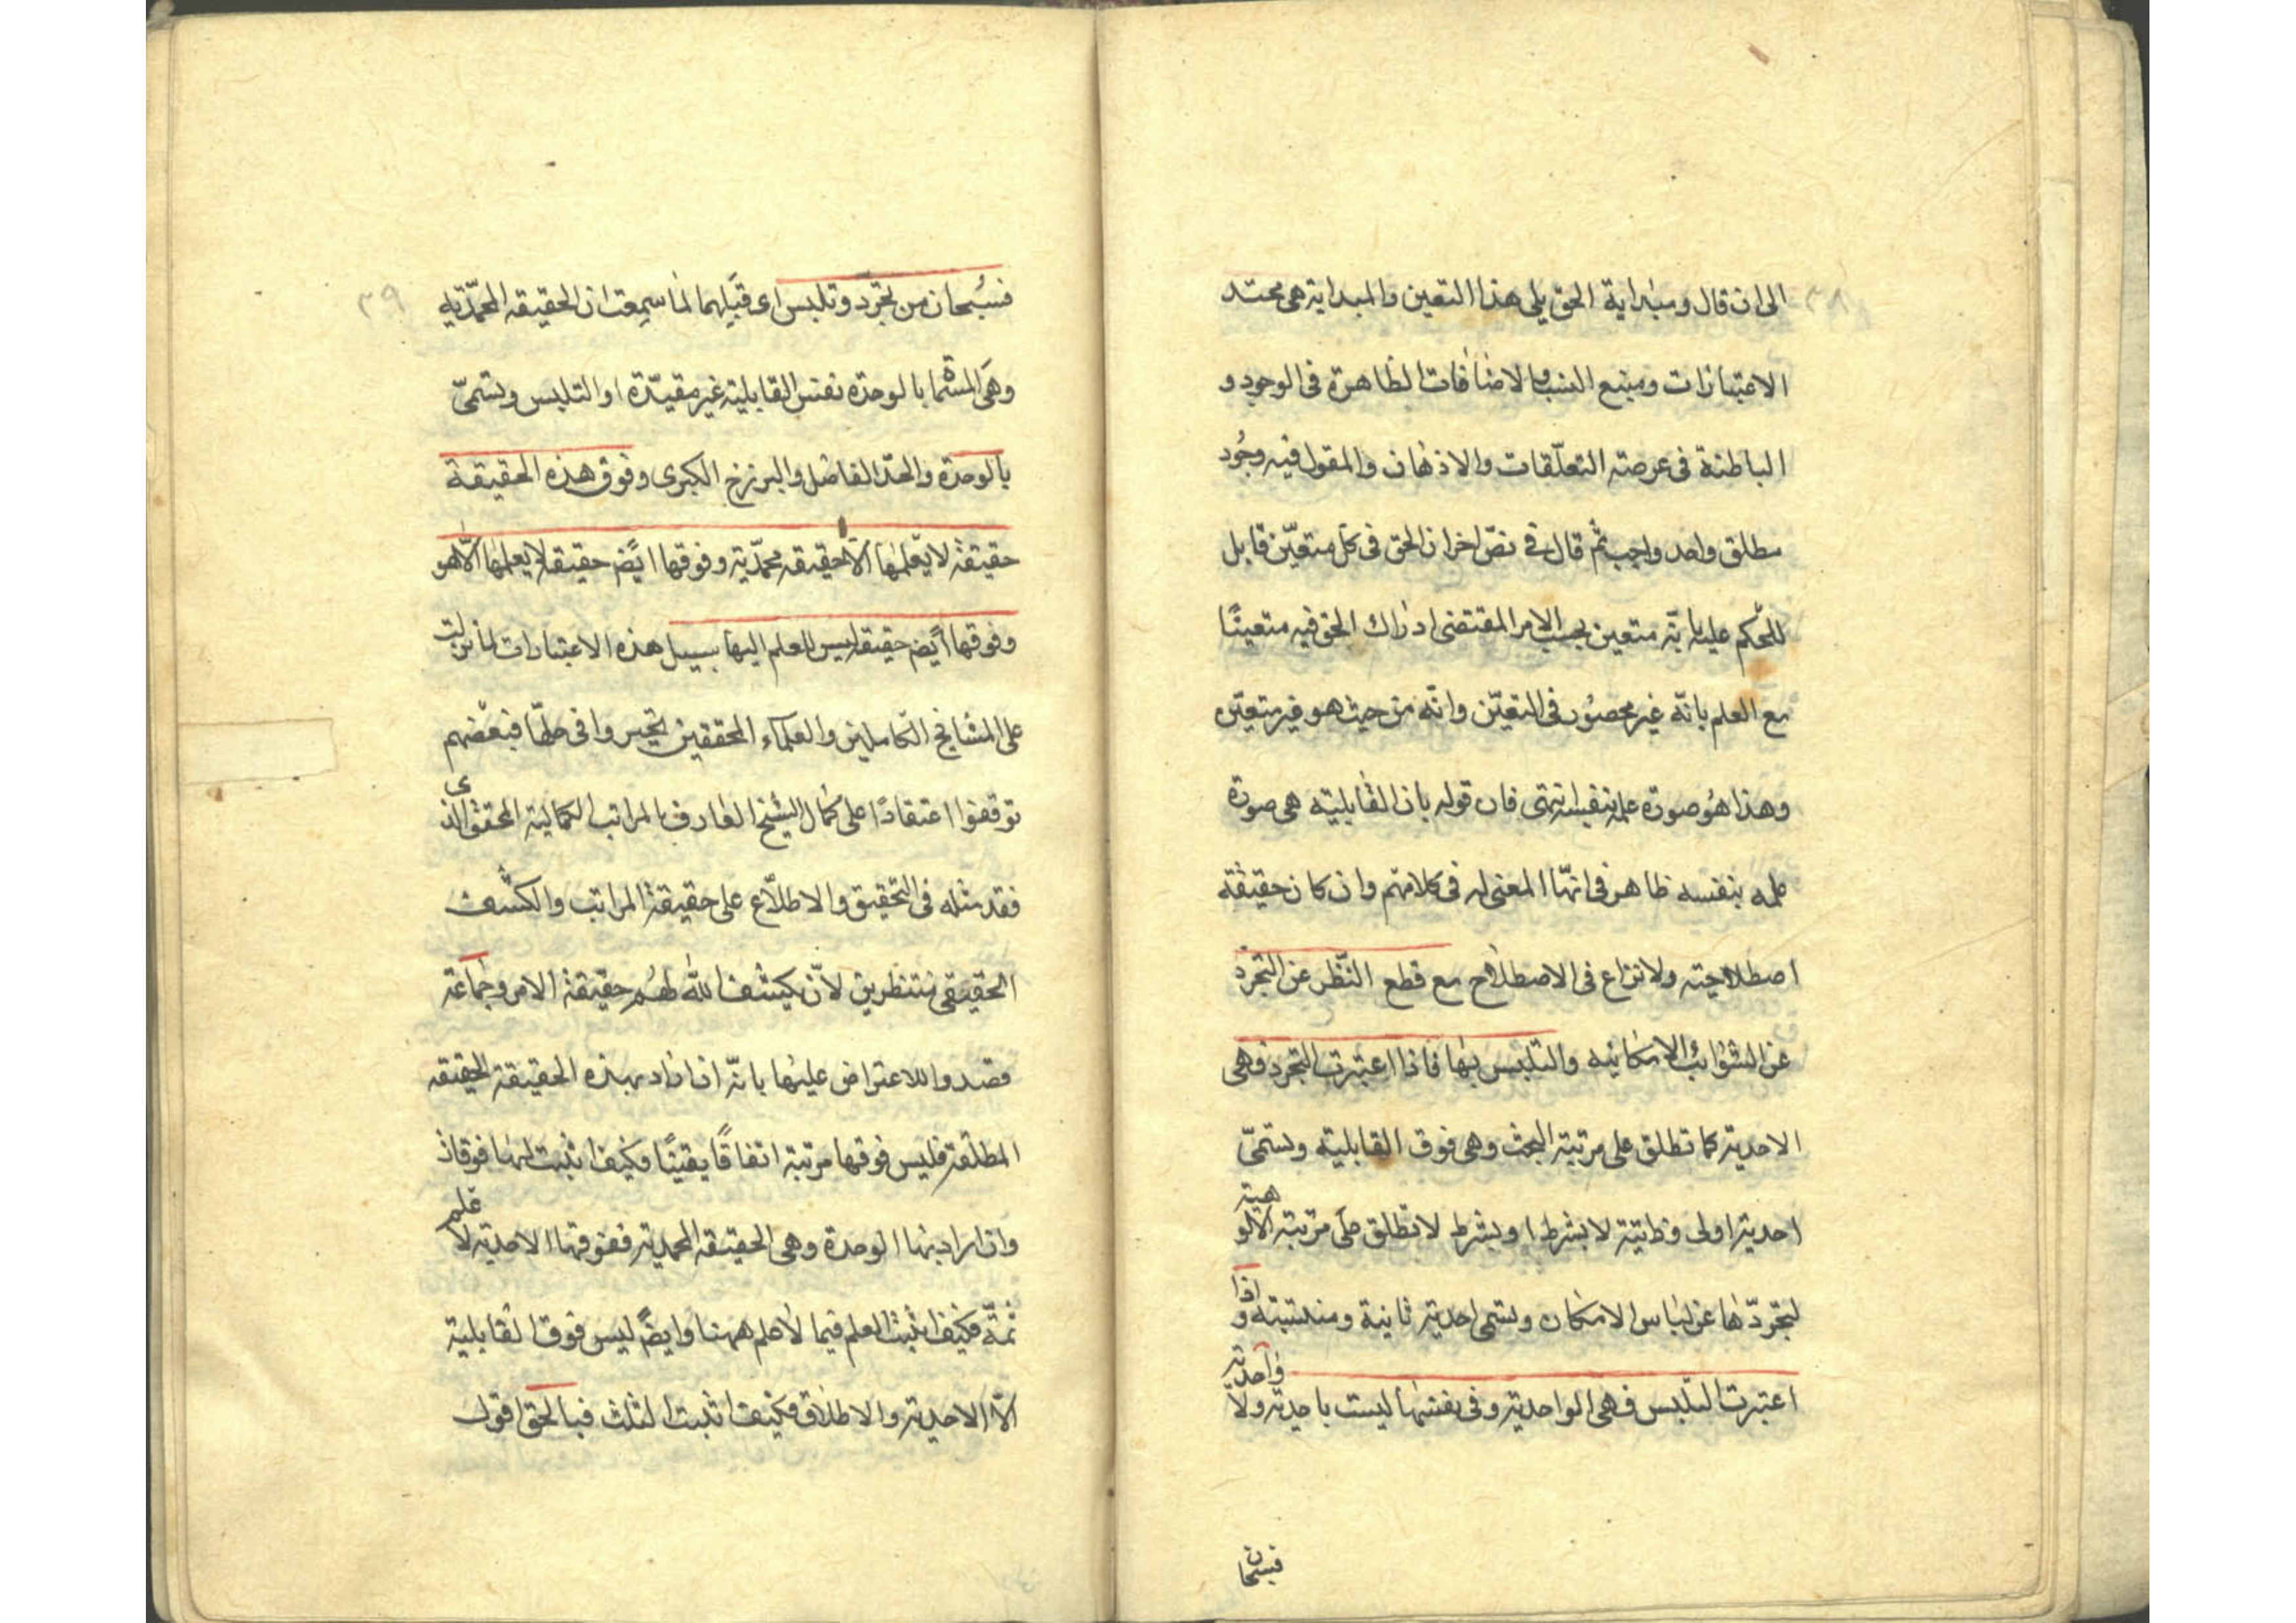 الى ان قال ومبداية الحق يلى هذا التعين والمبداية هى محتد
الاعتبارات ومنبع النسب والاضافات الظاهرة فى الوجود و
الباطنة فى عرصة التعلّقات والاذهان والمقول فيه وجُود
مطلق واحد واجب ثم قال فى نصّ اخر ان الحق فى كل متعيّن قابل
للحكم عليه بانّه متعين بحسب الامر المقتضى ادراك الحق فيه متعينًا
مع العلم بانّه غير محصُور فى التعيّن وانّه من حيث هو غير متعيّن
وهذا هُو صورة علمه بنفسه انتهى فان قوله بان القابلية هى صورة
علمه بنفسه ظاهر فى انهّا المعنى له فى كلامهم وان كان حقيقة
اصطلاحيّة ولا نزاع فى الاصطلاح مع قطع النّظر عن التجرّد
عن الشوائب الامكانيه والتلبس بها فاذا اعتبرت التجرد فهى
الاحدية كما تطلق على مرتبة البحث وهى فوق القابلية وتسمّى
احدية اولى وذاتية لا بشرط او بشرط لا تطلق على مرتبة الالوهية
لتجرّدها عن لباس الامكان وتسمى احدية ثانية و منتسبة و اذا
اعتبرت التلبس فهى الواحدية وفى نفسها ليست باحدية ولا واحدية
فسبحان
٣٩
فسُبحان من تجرّد وتلبس اى قبيلهما لما سمِعت ان الحقيقه المحمّديه
وهى المسّما بالوحدة نفس القابلية غير مقيّدة او التلبس وتسمّى
بالوحدة والحدّ الفاضل والبرزخ الكبرى وفوق هذه الحقيقة
حقيقة لا يعلمها الّا حقيقه محمّدية وفوقها ايضً حقيقة لا يعلمها الّا هو
وفوقها ايضً حقيقه ليس للعلم اليها سبيل هذه الاعتبارات لما نزلت
على المشايخ الكاملين والعلماء المحققين تحيروا فى حلّها فبعضهم
توقفوا اعتقادًا على كمال الشيخ العارف بالمراتب الكمالية المحقق الذى
فقد مثله فى التحقيق والاطلّاع على حقيقة المراتب والكشف
الحقيقى منتظرين لانّ يكشف الله لهُم حقيقة الامر وجماعة
قصدوا للاعتراض عليها بانّه ان اراد بهذه الحقيقة الحقيقه
المطلقة فليس فوقها مرتبة اتفاقًا يقينًا فكيف اثبت لها فوقا
وان اراد بها الوحدة وهى الحقيقه المحمدية ففوقها الاحدية لا علم
ثمّة فكيف اثبت العلم فيما لا علم ههنا وايضً ليس فوق القابلية
الّا الاحدية والاطلاق فكيف اثبت الثلث فبالحق اقول